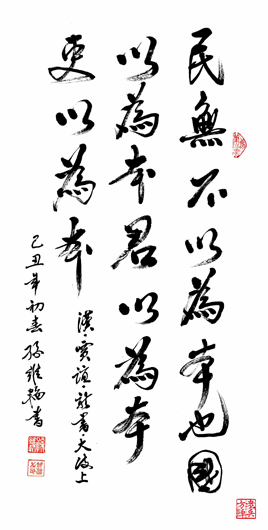 民無不以為本也國
以為本君以為本
吏以為本
漢賈誼新書大政上
己丑年初春書